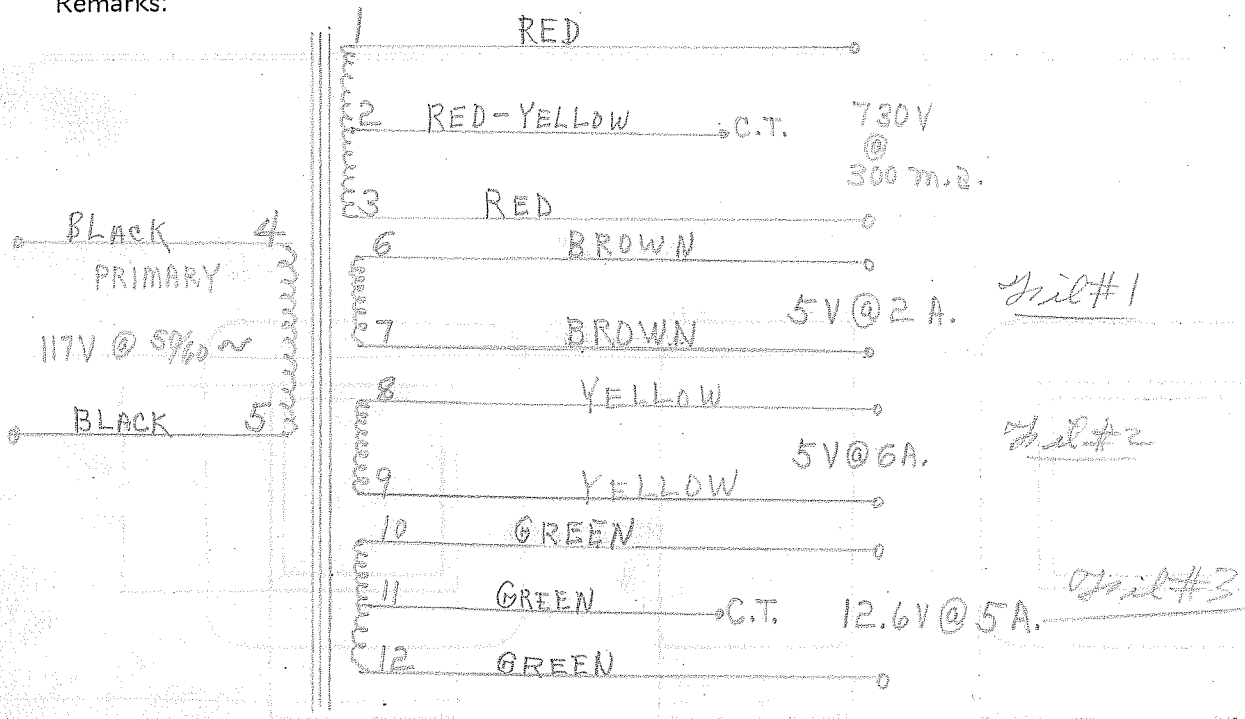 Remarks:
1 RED
2 RED-YELLOW C.T.
730V
@
300 m.a.
3 RED
BLACK 4
PRIMARY
117V @ 50/60 ~
BLACK 5
6 BROWN
5V@2 A. Fil#1
7 BROWN
8 YELLOW
5V@6A. Fil#2
9 YELLOW
10 GREEN
11 GREEN C.T. 12.6V@5A. Fil#3
12 GREEN